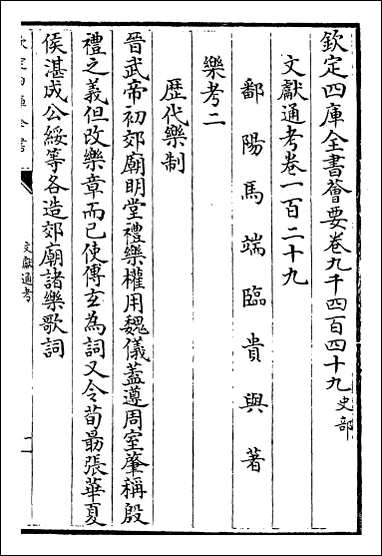 欽定四庫全書薈要卷九千四百四十九 史部
文獻通考卷一百二十九
鄱陽馬端臨貴與著
樂考二
歴代樂制
晉武帝初郊廟明堂禮樂權用魏儀蓋遵周室肇稱殷
禮之義但改樂章而已使傅玄為詞又令荀勗張華夏
侯湛成公綏等各造郊廟諸樂歌詞
欽定四庫全書
文獻通考